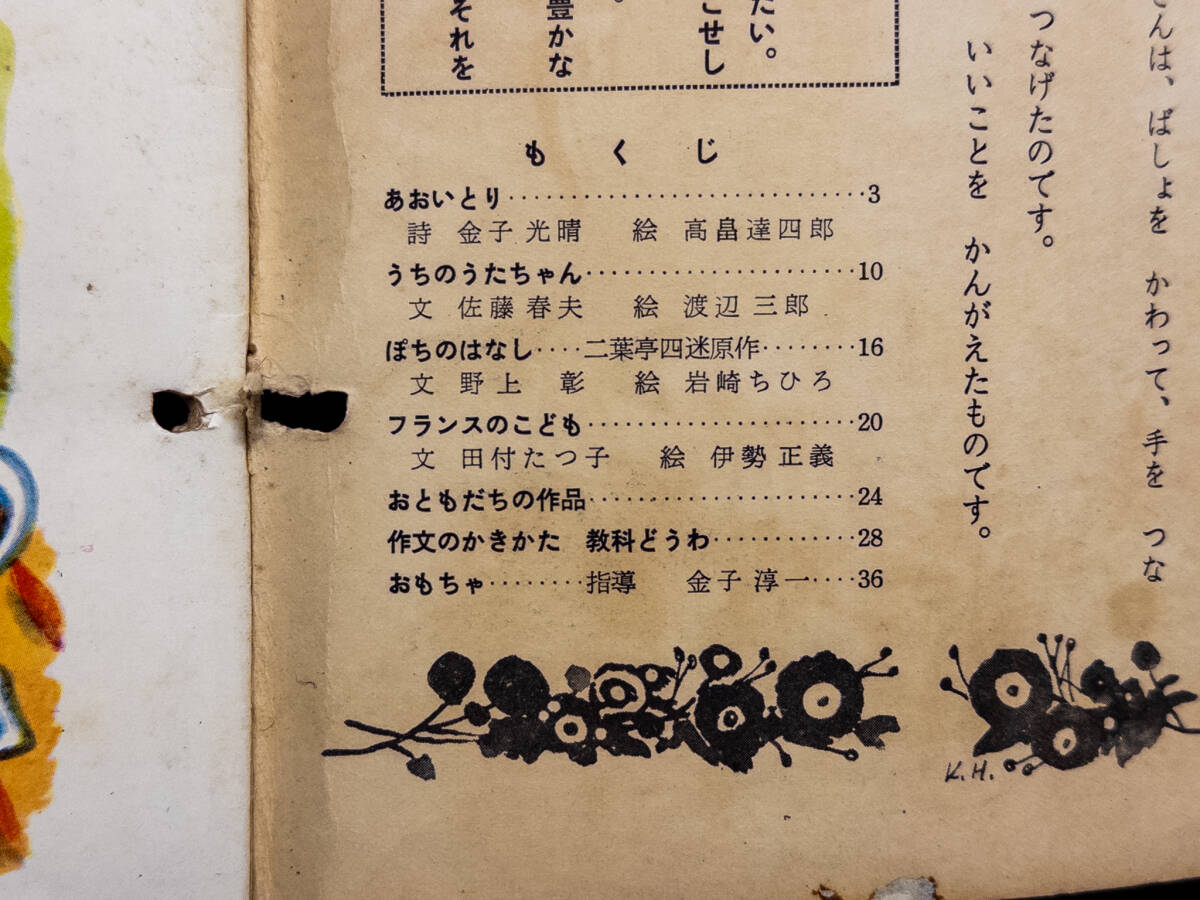 さんは、ばしょを かわって、手を つな
つなげたのです。
いいことを かんがえたものです。
たい。
こせし
。
豊かな
それを
もくじ
あおいとり‥‥‥‥‥‥‥‥‥‥‥‥‥‥3
詩 金子光晴 絵 高畠達四郎
うちのうたちゃん‥‥‥‥‥‥‥‥‥‥‥10
文 佐藤春夫 絵 渡辺三郎
ぽちのはなし‥‥二葉亭四迷原作‥‥‥‥16
文 野上 彰 絵 岩崎ちひろ
フランスのこども‥‥‥‥‥‥‥‥‥‥‥20
文 田付たつ子 絵 伊勢正義
おともだちの作品‥‥‥‥‥‥‥‥‥‥‥24
作文のかきかた 教科どうわ‥‥‥‥‥‥28
おもちゃ‥‥‥‥指導 金子淳一‥‥36
K.H.